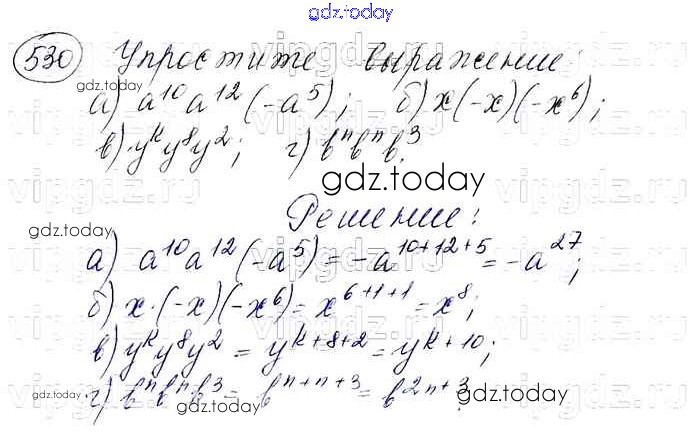 gdz.today
530 Упростите выражение:
gdz.today
а) a¹⁰a¹²(-a⁵); б) x(-x)(-x⁶);
в) yᵏy⁸y²; г) bⁿbⁿb³.
gdz.today
Решение:
gdz.today
а) a¹⁰a¹²(-a⁵) = -a¹⁰⁺¹²⁺⁵ = -a²⁷;
б) x·(-x)(-x⁶) = x⁶⁺¹⁺¹ = x⁸;
в) yᵏy⁸y² = yᵏ⁺⁸⁺² = yᵏ⁺¹⁰;
г) bⁿbⁿb³ = bⁿ⁺ⁿ⁺³ = b²ⁿ⁺³.
gdz.today
gdz.today
vipgdz.ru